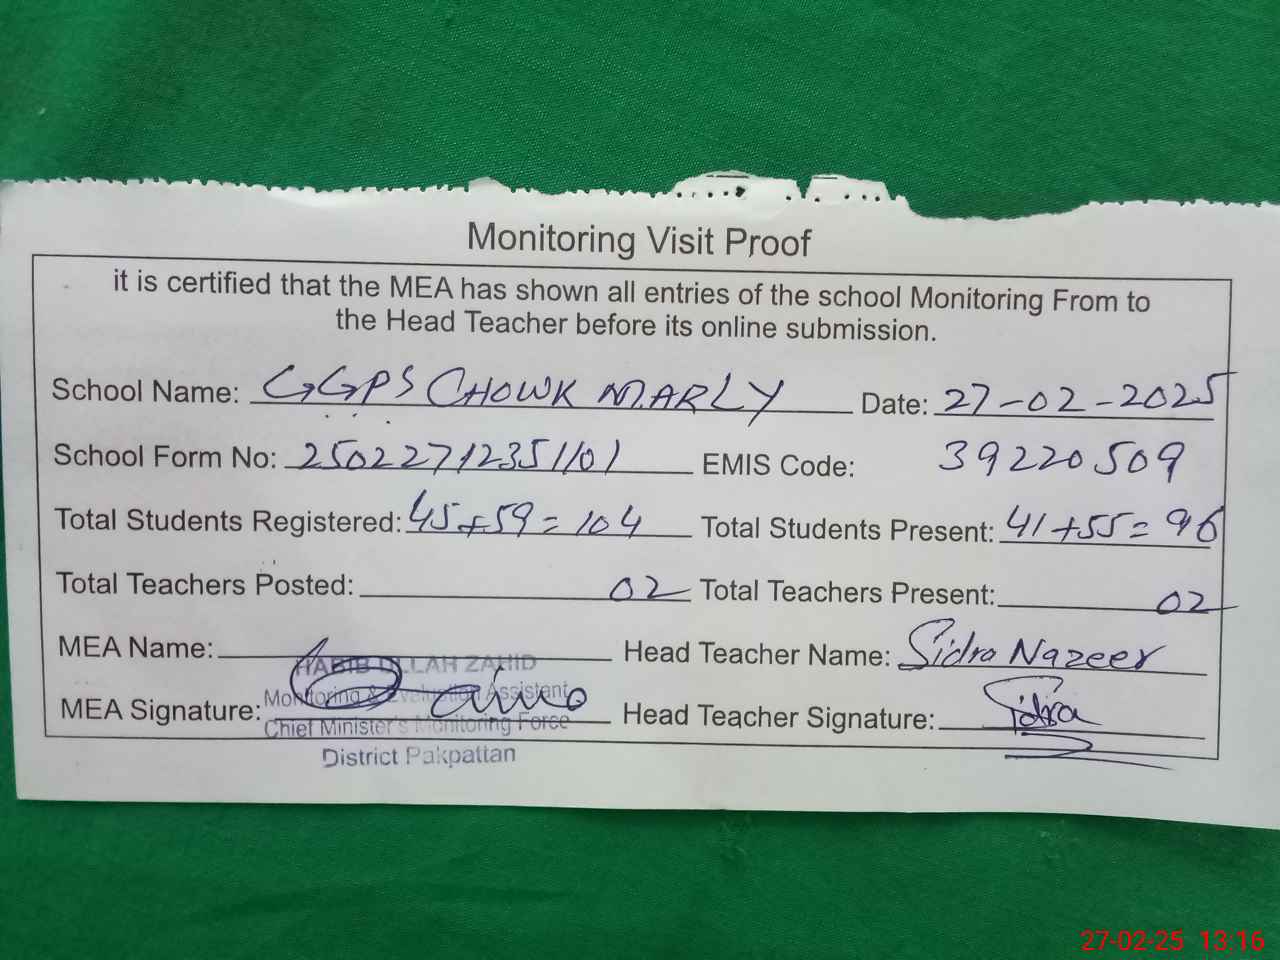 Monitoring Visit Proof
it is certified that the MEA has shown all entries of the school Monitoring From to
the Head Teacher before its online submission.
School Name: GGPS CHOWK MARLY Date: 27-02-2025
School Form No: 25022712351101 EMIS Code: 39220509
Total Students Registered: 45+59=104 Total Students Present: 41+55=96
Total Teachers Posted: 02 Total Teachers Present: 02
MEA Name: HABIB ULLAH ZAHID Head Teacher Name: Sidra Nazeer
Monitoring & Evaluation Assistant
MEA Signature: Head Teacher Signature: Sidra
Chief Minister's Monitoring Force
District Pakpattan
27-02-25 13:16